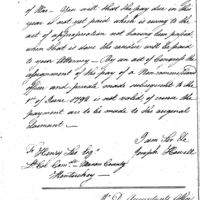 of War. You will that the pay due in this
year is not yet paid which is owing to the
act of appropriation not having been passed,
when that is done the residue will be paid
to your Attorney. By an act of Congress the
assignment of the pay of a Non commissioned
officer and private made subsequently to the
1st of June 1792 is not valid, of course the
payment are to be made to the original
Claimant.
I am Sir &c
Joseph Howell
To Henry Lee Esqr
Lt Col. Com. Mason County
Kentuckey